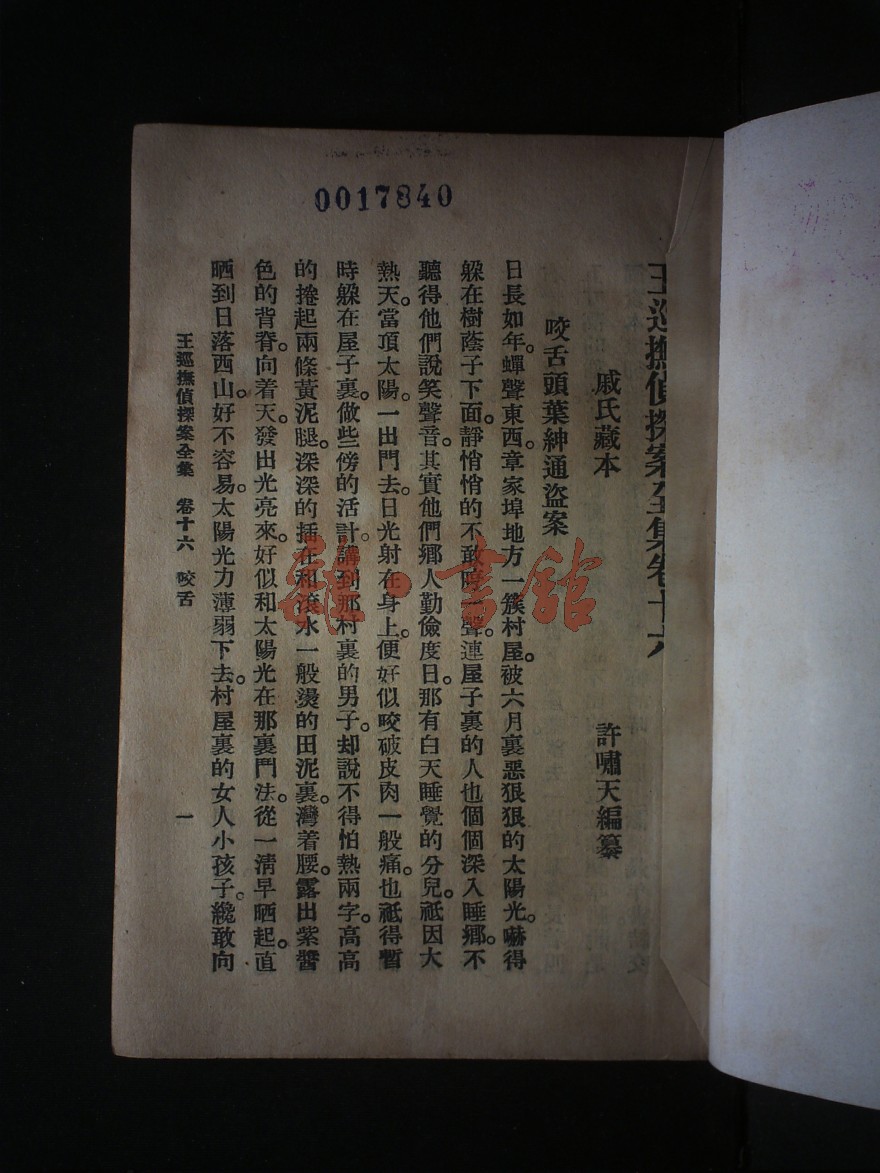 0017840
王巡撫偵探案全集卷十六
戚氏藏本
許嘯天編纂
咬舌頭葉紳通盜案
日長如年。蟬聲東西。章家埠地方一簇村屋。被六月裏惡狠狠的太陽光。嚇得
躲在樹蔭子下面。靜悄悄的不敢喘一聲。連屋子裏的人也個個深入睡鄉。不
聽得他們說笑聲音。其實他們鄉人勤儉度日。那有白天睡覺的分兒。祇因大
熱天。當頂太陽。一出門去。日光射在身上。便好似咬破皮肉一般痛。也祗得暫
時躲在屋子裏。做些傍的活計。講到那村裏的男子。却說不得怕熱兩字。高高
的捲起兩條黃泥腿。深深的插在和滾水一般燙的田泥裏。灣着腰。露出紫醬
色的背脊。向着天。發出光亮來。好似和太陽光在那裏鬥法。從一清早晒起。直
晒到日落西山。好不容易。太陽光力薄弱下去。村屋裏的女人小孩子。纔敢向
王巡撫偵探案全集 卷十六 咬舌
一
雜·書館